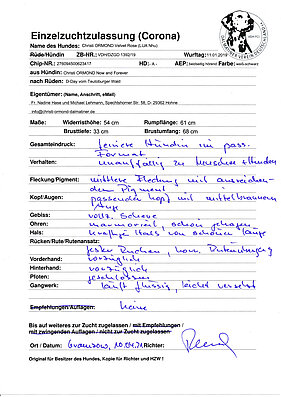 Einzelzuchtzulassung (Corona)
Name des Hundes: Christi ORMOND Velvet Rose (LUA NHu)
Rüde/Hündin ZB-HR.: VDH/DZGD 1392/19 Wurftag: 11.01.2019
Chip-Nr.: HD: A - AEP: beidseitig hörend Farbe: weiß-schwarz
aus Hündin: Christi ORMOND Now and Forever
nach Rüden: D-Day vom Teutoburger Wald
Eigentümer: (Name, Anschrift, eMail)
Fr. Nadine Hase und Michael Lehmann, Spechtshorner Str. 58, D- 29362 Hohne
info@christi-ormond-dalmatiner.de
Maße: Widerristhöhe: 54 cm Rumpflänge: 61 cm
Brusttiefe: 33 cm Brustumfang: 68 cm
Gesamteindruck: feminine Hündin im pass.
Format
Verhalten: unauffällig zu Menschen + Hunden
Fleckung/Pigment: mittlere Fleckung mit ausreichen-
dem Pigment
Kopf/Augen: passender Kopf mit mittelbraunem
Auge
Gebiss: vollz. Schere
Ohren: marmoriert, schön getragen
Hals: kräftiger Hals von schöner Länge
Rücken/Rute/Rutenansatz:
fester Rücken, korr. Rutenhaltung
Vorderhand: vorzüglich
Hinterhand: vorzüglich
Pfoten: geschlossen
Gangwerk: läuft flüssig, leicht versetzt
Empfehlungen/Auflagen: keine
Bis auf weiteres zur Zucht zugelassen / mit Empfehlungen /
mit zwingenden Auflagen / nicht zur Zucht zugelassen
Ort / Datum: 10.04.21 Richter:
Original für Besitzer des Hundes, Kopie für Richter und HZW !